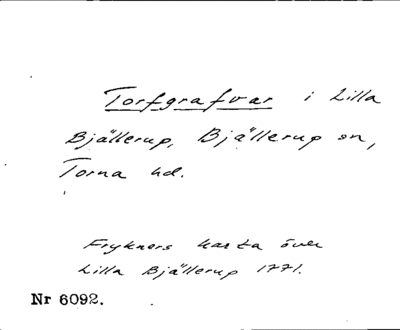 Torfgrafvar i Lilla
Bjällerup, Bjällerup sn,
Torna hd.
Frykners karta över
Lilla Bjällerup 1771.
Nr 6092.